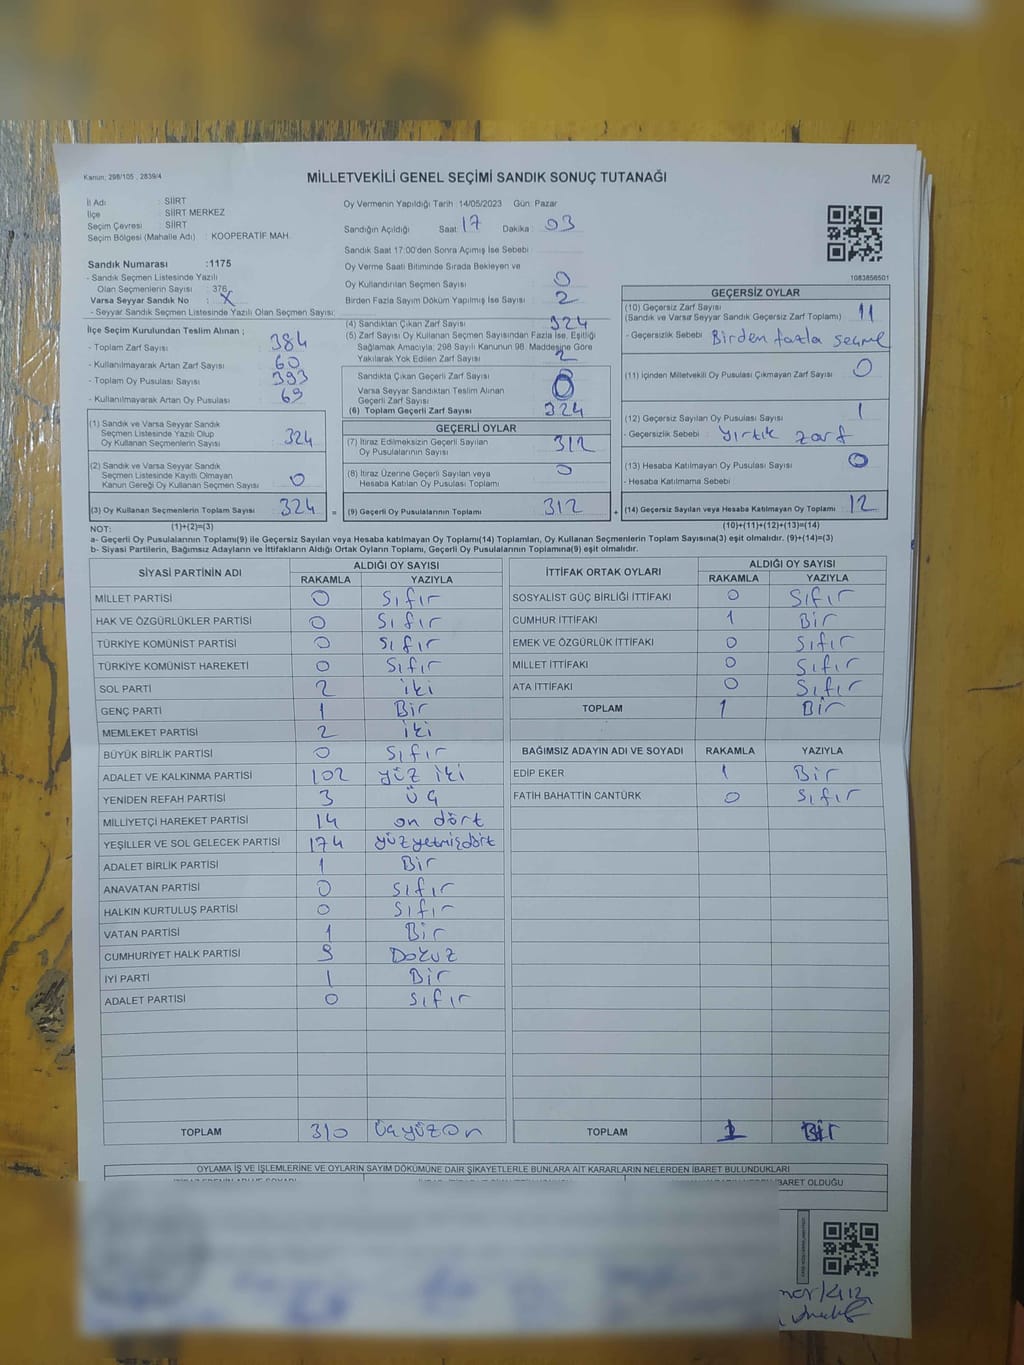 Kanun; 298/105 , 2839/4
MİLLETVEKİLİ GENEL SEÇİMİ SANDIK SONUÇ TUTANAĞI
M/2
İl Adı : SİİRT
İlçe : SİİRT MERKEZ
Seçim Çevresi : SİİRT
Seçim Bölgesi (Mahalle Adı) : KOOPERATİF MAH.
Sandık Numarası :1175
- Sandık Seçmen Listesinde Yazılı
Olan Seçmenlerin Sayısı : 376
Varsa Seyyar Sandık No : X
- Seyyar Sandık Seçmen Listesinde Yazılı Olan Seçmen Sayısı:
İlçe Seçim Kurulundan Teslim Alınan ;
- Toplam Zarf Sayısı : 384
- Kullanılmayarak Artan Zarf Sayısı : 60
- Toplam Oy Pusulası Sayısı : 393
- Kullanılmayarak Artan Oy Pusulası : 69
(1) Sandık ve Varsa Seyyar Sandık
Seçmen Listesinde Yazılı Olup
Oy Kullanan Seçmenlerin Sayısı 324
(2) Sandık ve Varsa Seyyar Sandık
Seçmen Listesinde Kayıtlı Olmayan
Kanun Gereği Oy Kullanan Seçmen Sayısı 0
(3) Oy Kullanan Seçmenlerin Toplam Sayısı 324 =
Oy Vermenin Yapıldığı Tarih : 14/05/2023 Gün: Pazar
Sandığın Açıldığı Saat: 17 Dakika : 03
Sandık Saat 17:00'den Sonra Açımış İse Sebebi :
Oy Verme Saati Bitiminde Sırada Bekleyen ve
Oy Kullandırılan Seçmen Sayısı : 0
Birden Fazla Sayım Döküm Yapılmış İse Sayısı : 2
(4) Sandıktan Çıkan Zarf Sayısı : 324
(5) Zarf Sayısı Oy Kullanan Seçmen Sayısından Fazla İse, Eşitliği
Sağlamak Amacıyla; 298 Sayılı Kanunun 98. Maddesine Göre
Yakılarak Yok Edilen Zarf Sayısı : 2
Sandıkta Çıkan Geçerli Zarf Sayısı :
Varsa Seyyar Sandıktan Teslim Alınan
Geçerli Zarf Sayısı : 0
(6) Toplam Geçerli Zarf Sayısı : 324
GEÇERLİ OYLAR
(7) İtiraz Edilmeksizin Geçerli Sayılan
Oy Pusulalarının Sayısı : 312
(8) İtiraz Üzerine Geçerli Sayılan veya
Hesaba Katılan Oy Pusulası Toplamı : 0
(9) Geçerli Oy Pusulalarının Toplamı : 312 +
1083856501
GEÇERSİZ OYLAR
(10) Geçersiz Zarf Sayısı
(Sandık ve Varsa Seyyar Sandık Geçersiz Zarf Toplamı) : 11
- Geçersizlik Sebebi : Birden fazla seçme
(11) İçinden Milletvekili Oy Pusulası Çıkmayan Zarf Sayısı : 0
(12) Geçersiz Sayılan Oy Pusulası Sayısı : 1
- Geçersizlik Sebebi : yırtık zarf
(13) Hesaba Katılmayan Oy Pusulası Sayısı : 0
- Hesaba Katılmama Sebebi :
(14) Geçersiz Sayılan veya Hesaba Katılmayan Oy Toplamı : 12
NOT: (1)+(2)=(3) (10)+(11)+(12)+(13)=(14)
a- Geçerli Oy Pusulalarının Toplamı(9) ile Geçersiz Sayılan veya Hesaba Katılmayan Oy Toplamı(14) Toplamları, Oy Kullanan Seçmenlerin Toplam Sayısına(3) eşit olmalıdır. (9)+(14)=(3)
b- Siyasi Partilerin, Bağımsız Adayların ve İttifakların Aldığı Ortak Oyların Toplamı, Geçerli Oy Pusulalarının Toplamına(9) eşit olmalıdır.
SİYASİ PARTİNİN ADI ALDIĞI OY SAYISI
RAKAMLA YAZIYLA
MİLLET PARTİSİ 0 Sıfır
HAK VE ÖZGÜRLÜKLER PARTİSİ 0 Sıfır
TÜRKİYE KOMÜNİST PARTİSİ 0 Sıfır
TÜRKİYE KOMÜNİST HAREKETİ 0 Sıfır
SOL PARTİ 2 iki
GENÇ PARTİ 1 Bir
MEMLEKET PARTİSİ 2 iki
BÜYÜK BİRLİK PARTİSİ 0 Sıfır
ADALET VE KALKINMA PARTİSİ 102 yüz iki
YENİDEN REFAH PARTİSİ 3 üç
MİLLİYETÇİ HAREKET PARTİSİ 14 on dört
YEŞİLLER VE SOL GELECEK PARTİSİ 174 yüzyetmişdört
ADALET BİRLİK PARTİSİ 1 Bir
ANAVATAN PARTİSİ 0 Sıfır
HALKIN KURTULUŞ PARTİSİ 0 Sıfır
VATAN PARTİSİ 1 Bir
CUMHURİYET HALK PARTİSİ 9 Dokuz
İYİ PARTİ 1 Bir
ADALET PARTİSİ 0 Sıfır
TOPLAM 310 üçyüzon
İTTİFAK ORTAK OYLARI ALDIĞI OY SAYISI
RAKAMLA YAZIYLA
SOSYALİST GÜÇ BİRLİĞİ İTTİFAKI 0 Sıfır
CUMHUR İTTİFAKI 1 Bir
EMEK VE ÖZGÜRLÜK İTTİFAKI 0 Sıfır
MİLLET İTTİFAKI 0 Sıfır
ATA İTTİFAKI 0 Sıfır
TOPLAM 1 Bir
BAĞIMSIZ ADAYIN ADI VE SOYADI RAKAMLA YAZIYLA
EDİP EKER 1 Bir
FATİH BAHATTİN CANTÜRK 0 Sıfır
TOPLAM 1 Bir
OYLAMA İŞ VE İŞLEMLERİNE VE OYLARIN SAYIM DÖKÜMÜNE DAİR ŞİKAYETLERLE BUNLARA AİT KARARLARIN NELERDEN İBARET BULUNDUKLARI
İBARET OLDUĞU